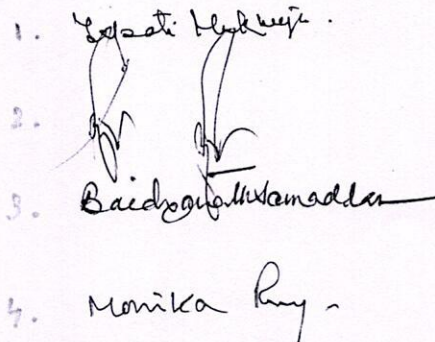 1. Tapati Mukherji.
2.
3. Baidyanath Samaddar
4. Monika Roy -